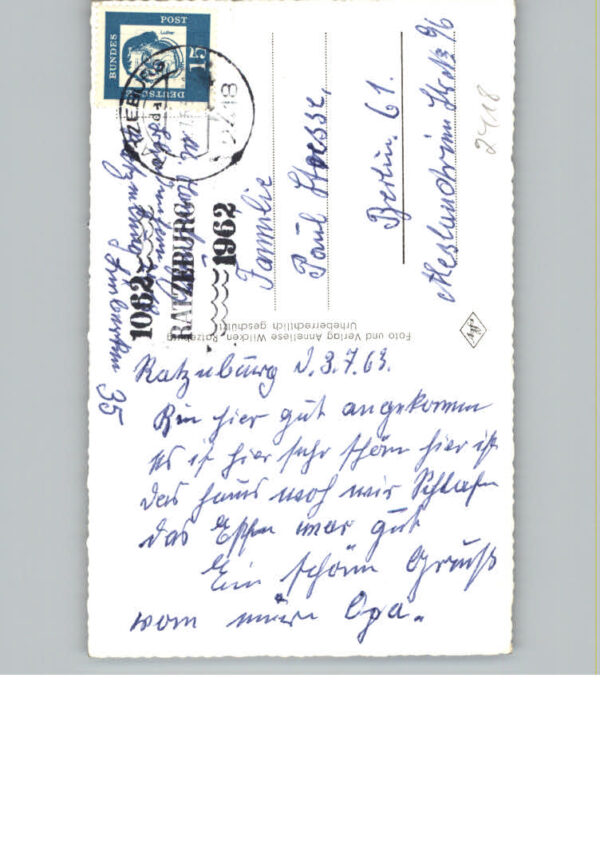 DEUTSCHE
BUNDES
POST
15
Luther
18
1062
RATZEBURG
1962
Familie
Paul Stresse,
Berlin. 61.
96
2418
Foto und Verlag Anneliese Wilcken, Ratzeburg
Urheberrechtlich geschützt
35
Ratzeburg d. 3.7.63.
Bin hier gut angekommen
es ist hier sehr schön hier ist
das Haus woh wir Schlafen
das Essen war gut
Ein schönn Gruß
vom Opa.